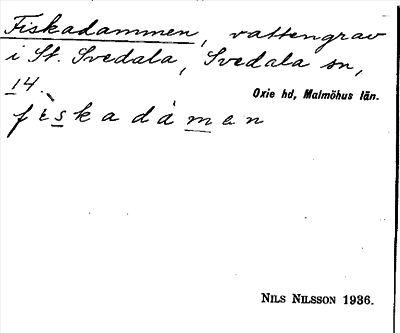 Fiskadammen, vattengrav
i St. Svedala, Svedala sn,
14.
Oxie hd, Malmöhus län.
fìskadámen
NILS NILSSON 1936.